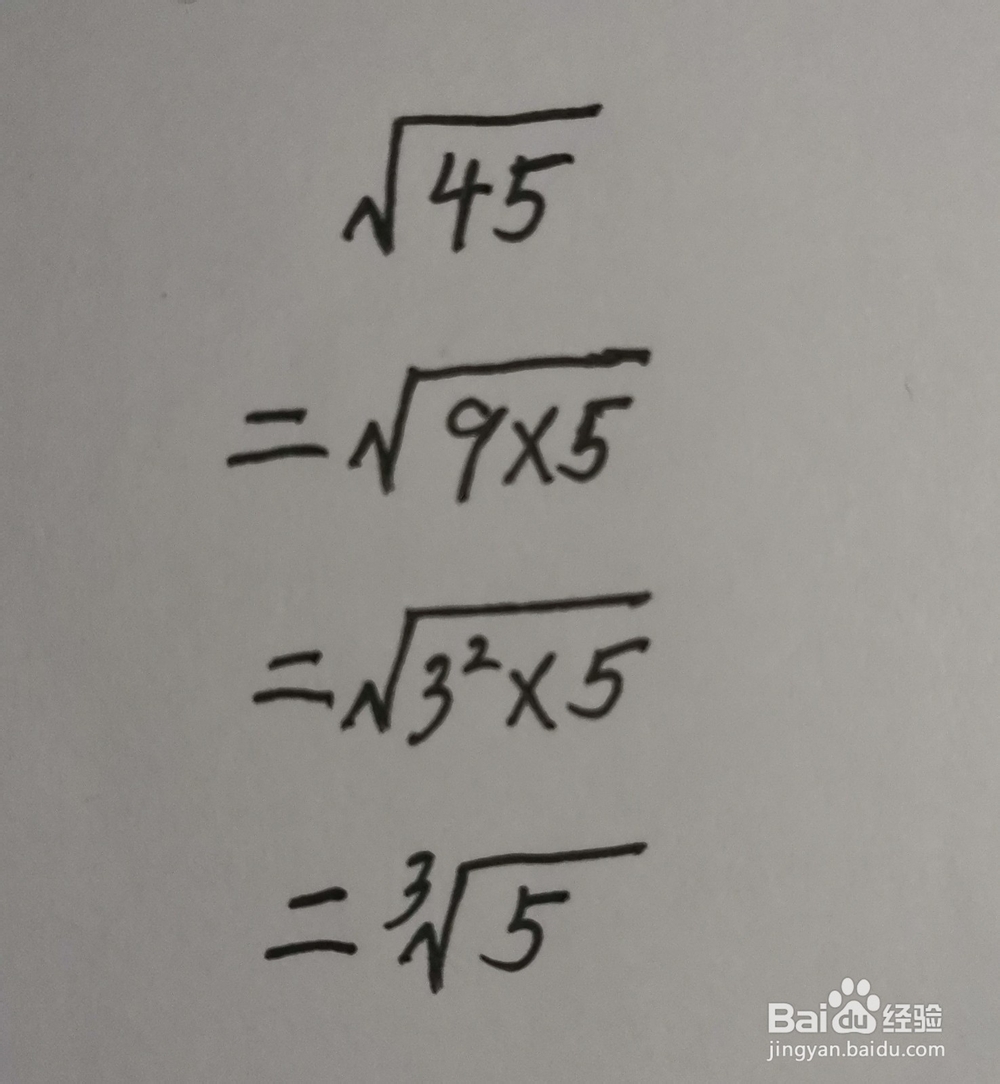 √45
=√9×5
=√3²×5
=³√5
Baidu 经验
jingyan.baidu.com